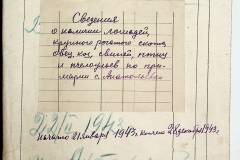 Сведения
о наличии лошадей,
крупного рогатого скота,
овец, коз, свиней, птицы
и пчелосемей по при-
марии с.
1943
начато 21 января 1943, кончено 28 декабря 1943.